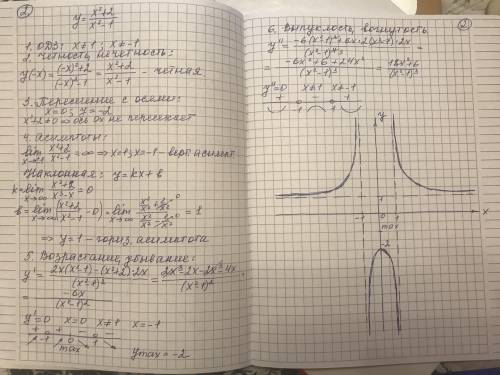 2
y = (x²+2)/(x²-1)
1. ОДЗ: x ≠ 1; x ≠ -1
2. четность, нечетность:
y(-x) = ((-x)²+2)/((-x)²-1) = (x²+2)/(x²-1) - четная
3. Пересечение с осями:
x=0; y=-2
x²+2≠0 ⇒ ось ох не пересекает
4. асимптоты:
lim x→±1 (x²+2)/(x²-1) = ∞ ⇒ x=1; x=-1 - верт. асимпт
Наклонная: y = kx + b
k = lim x→∞ (x²+2)/(x³-x) = 0
b = lim x→∞ ((x²+2)/(x²-1) - 0) = lim x→∞ (x²/x² + 2/x²)/(x²/x² - 1/x²) = 1
⇒ y=1 - гориз. асимптота
5. Возрастание, убывание:
y' = (2x(x²-1) - (x²+2)·2x)/(x²-1)² = (2x³-2x-2x³-4x)/(x²-1)² =
= -6x/(x²-1)²
y'=0 x=0 x≠1 x=-1
+ + - -
-1 0 1
max
y max = -2
2
6. Выпуклость, вогнутость
= (-6x²+6+24x²)/(x²-1)³ = (18x²+6)/(x²-1)³
y''=0 x≠1 x≠-1
+ - +
-1 1
y
1
-1 0 1 x
max
-2